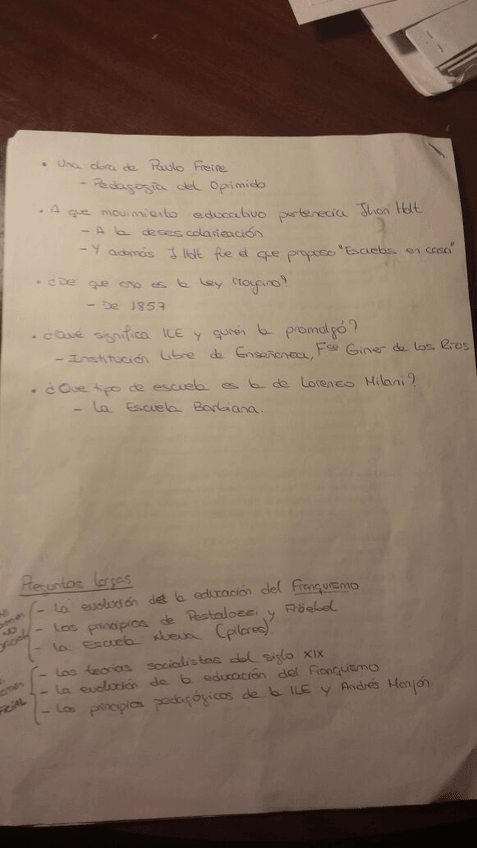 • Una obra de Paulo Freire
- Pedagogía del Opimido
• A que movimiento educativo pertenecía Jhon Holt
- A la desescolarización
- Y además J Holt fue el que propuso "Escuela en casa"
• ¿De que año es la Ley Moyano?
- De 1857
• ¿Qué significa ILE y quien la promulgó?
- Institución Libre de Enseñanza, Fco Giner de Los Rios
• ¿Que tipo de escuela es la de Lorenzo Milani?
- La Escuela Barbiana.
Preguntas largas
- La evolución de la educación del Franquismo
- Los principios de Pestalozzi y Fröebel
- La Escuela Nueva (pilares)
- Las teorías socialistas del siglo XIX
- La evolución de la educación del Franquismo
- Los principios pedagógicos de la ILE y Andrés Manjón